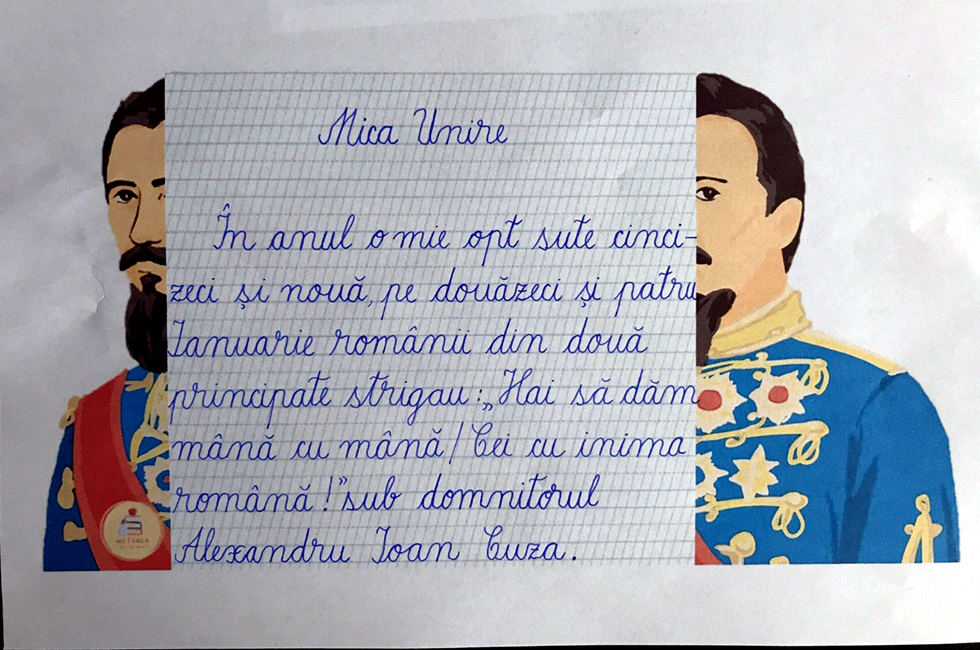 Mica Unire
În anul o mie opt sute cinci-
zeci și nouă, pe douăzeci și patru
Ianuarie românii din două
principate strigau: „Hai să dăm
mână cu mână! Cei cu inima
română!” sub domnitorul
Alexandru Ioan Cuza.